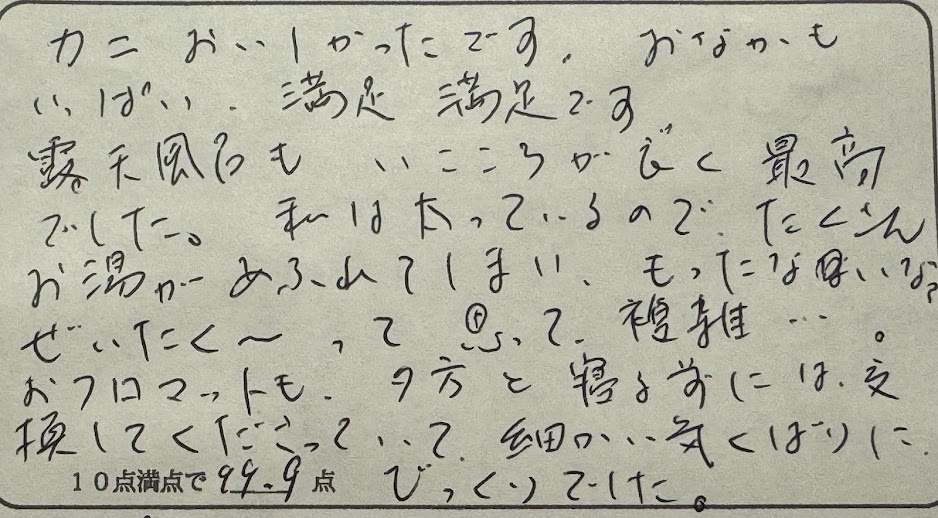 カニ おいしかったです。 おなかも
いっぱい。 満足 満足です
露天風呂も いごこちが良く 最高
でした。 私は太っているので、たくさん
お湯があふれてしまい、 もったいないな?
ぜいたく〜 って 思って、 複雑…。
おフロマットも、 夕方と 寝る前には、交
換してくださっていて、 細かい気くばりに
10点満点で 99.9 点 びっくりでした。